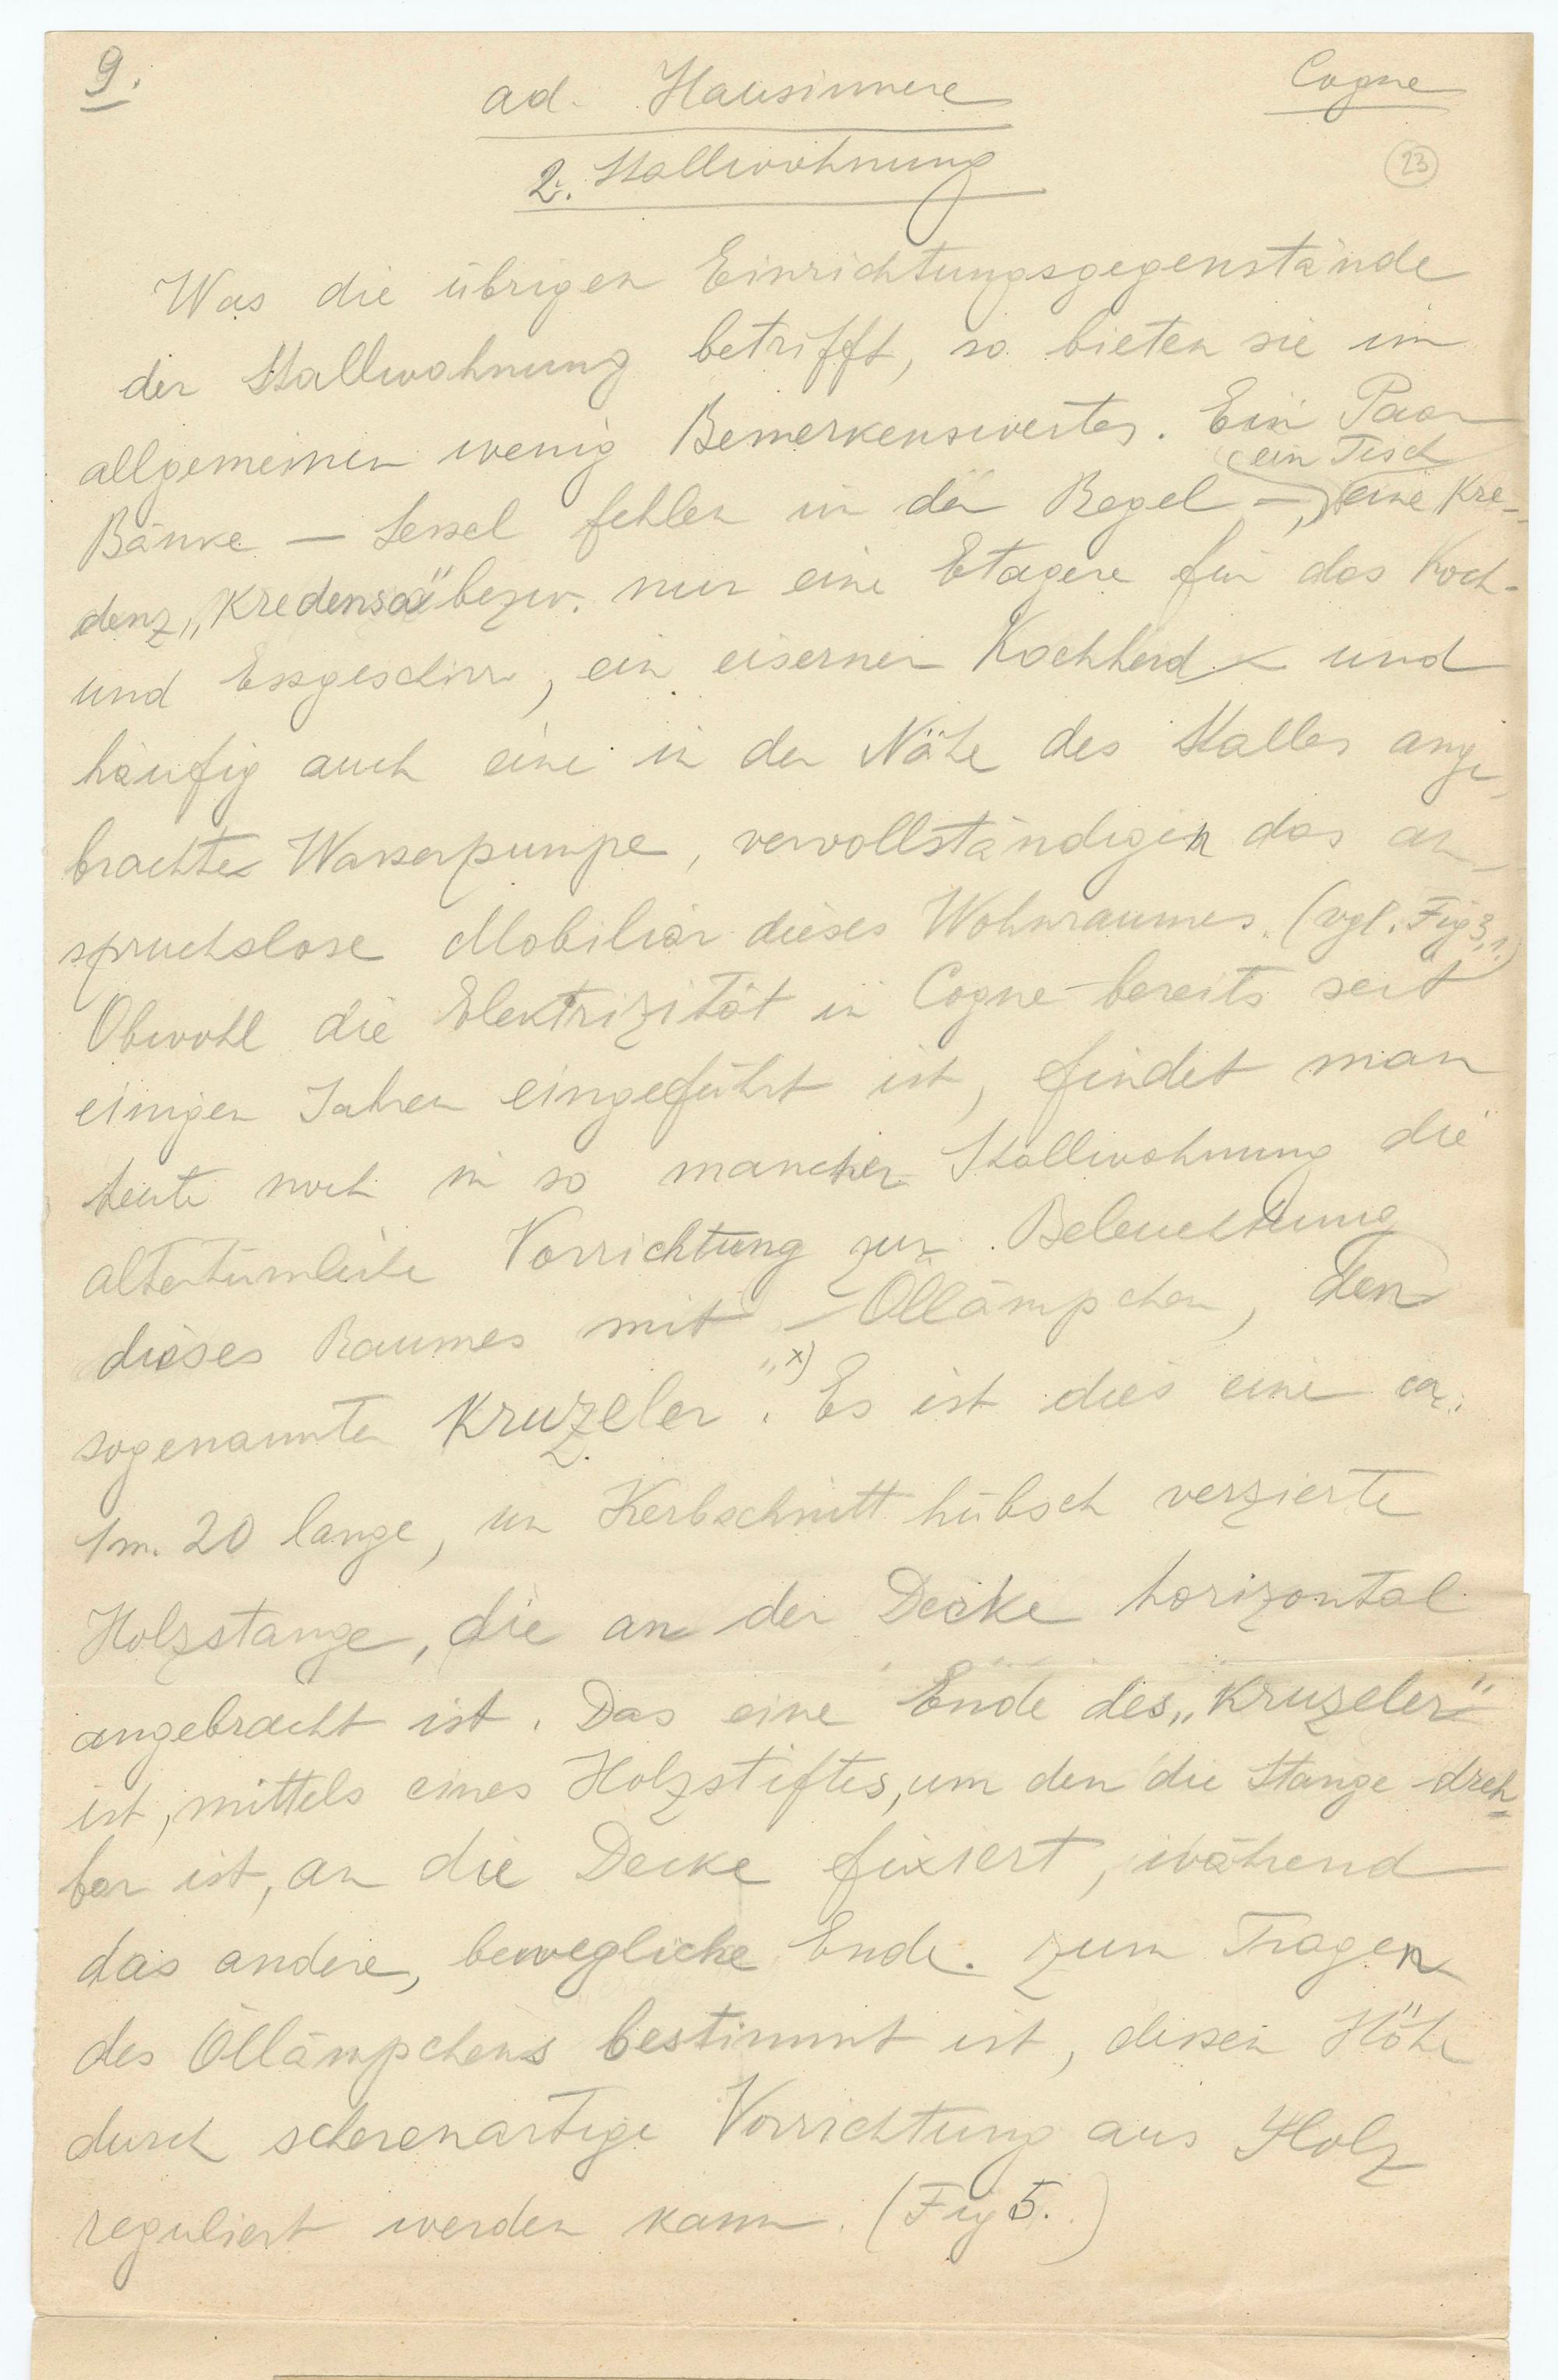 9.
ad. Hausinnere
Cogne
2. Stallwohnung
23
Was die übrigen Einrichtungsgegenstände
der Stallwohnung betrifft, so bieten sie im
allgemeinen wenig Bemerkenswertes. Ein Paar
ein Tisch
Bänke — Sessel fehlen in der Regel —, eine Kre-
denz, „Kredensa" bezw. nur eine Etagere für das Koch-
und Essgeschirr, ein eiserner Kochherd und
häufig auch eine in der Nähe des Stalles ange-
brachte Wasserpumpe, vervollständigen das an-
spruchslose Mobiliar dieses Wohnraumes. (vgl. Fig 3, 1.)
Obwohl die Elektrizität in Cogne bereits seit
einigen Jahren eingeführt ist, findet man
heute noch in so mancher Stallwohnung die
altertümliche Vorrichtung zur Beleuchtung
dieses Raumes mit Öllämpchen, den
sogenannten Kruzeler". x) Es ist dies eine ca.
1 m. 20 lange, in Kerbschnitt hübsch verzierte
Holzstange, die an der Decke horizontal
angebracht ist. Das eine Ende des „Kruzeler"
ist, mittels eines Holzstiftes, um den die Stange dreh-
bar ist, an die Decke fixiert, während
das andere, bewegliche Ende zum Tragen
des Öllämpchens bestimmt ist, dessen Höhe
durch scherenartige Vorrichtung aus Holz
reguliert werden kann. (Fig 5.)